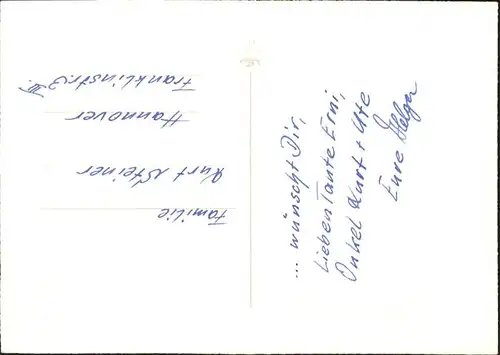 ... wünscht Dir,
Lieben Tante Erni,
Onkel Kurt + Ute
Eure Helga
Familie
Kurt Steiner
Hannover
Franklinstr. 3 III